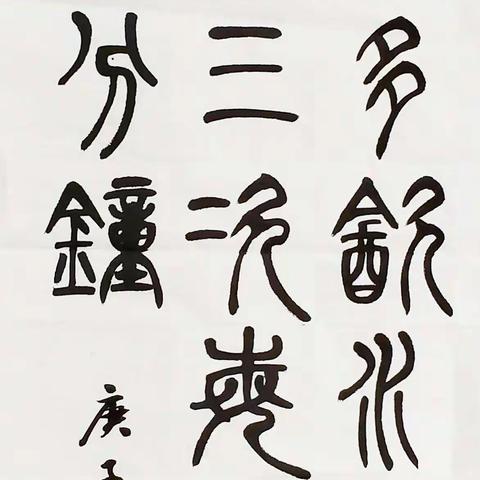 多飲水
三次每
分鐘
庚子